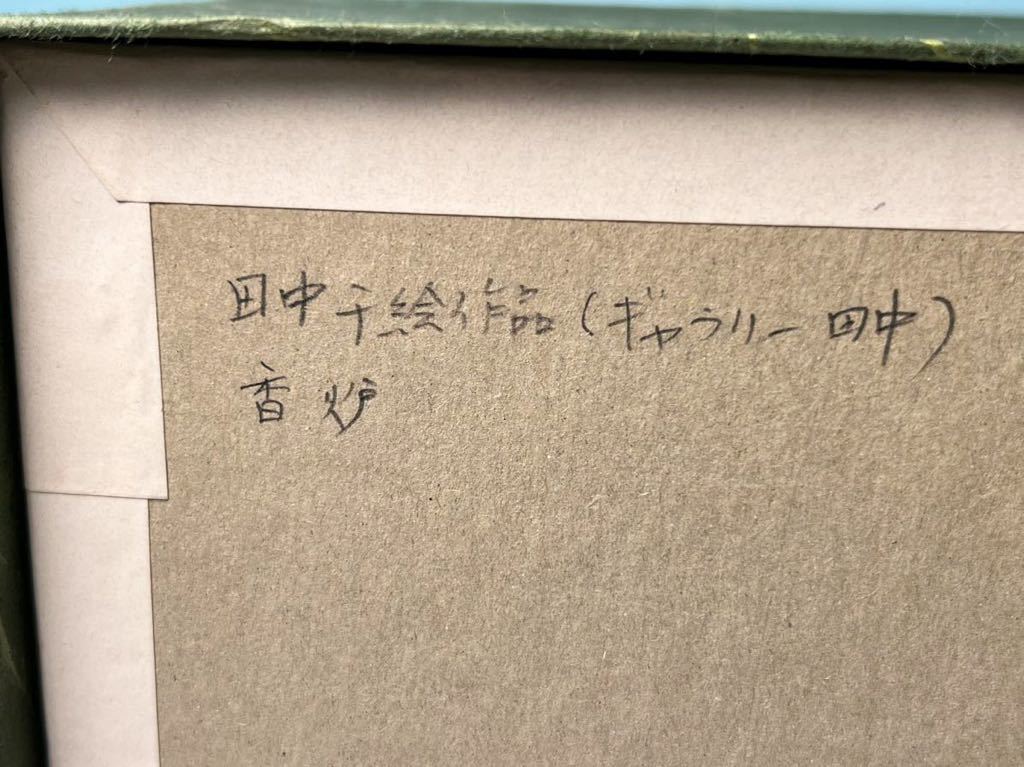 田中千絵作品(ギャラリー田中)
香炉